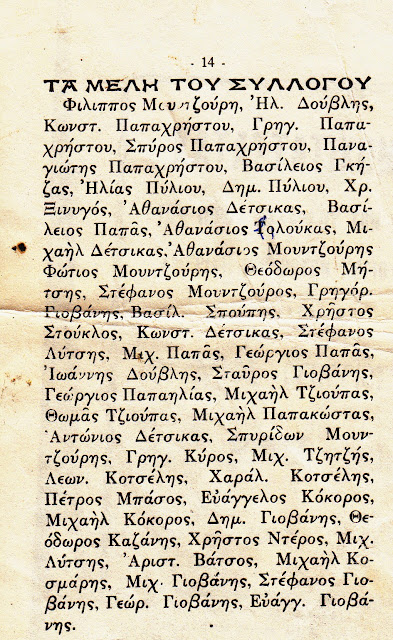 - 14 -
ΤΑ ΜΕΛΗ ΤΟΥ ΣΥΛΛΟΓΟΥ
Φίλιππος Μουντζούρη, Ἠλ. Δούβλης,
Κωνστ. Παπαχρήστου, Γρηγ. Παπα-
χρήστου, Σπύρος Παπαχρήστου, Πανα-
γιώτης Παπαχρήστου, Βασίλειος Γκή-
ζας, Ἠλίας Πύλιου, Δημ. Πύλιου, Χρ.
Ξινυγός, Ἀθανάσιος Δέτσικας, Βασί-
λειος Παπᾶς, Ἀθανάσιος Μι-
χαὴλ Δέτσικας, Ἀθανάσιος Μουντζούρης
Φώτιος Μουντζούρης, Θεόδωρος Μή-
τσης, Στέφανος Μουντζούρος, Γρηγόρ.
Γιοβάνης, Βασίλ. Σπούπης, Χρῆστος
Στοῦκλος, Κωνστ. Δέτσικας, Στέφανος
Λύτσης, Μιχ. Παπᾶς, Γεώργιος Παπᾶς,
Ἰωάννης Δούβλης, Σταῦρος Γιοβάνης,
Γεώργιος Παπαηλίας, Μιχαὴλ Τζιούπας,
Θωμᾶς Τζιούπας, Μιχαὴλ Παπακώστας,
Ἀντώνιος Δέτσικας, Σπυρίδων Μουν-
τζούρης, Γρηγ. Κύρος, Μιχ. Τζητζής,
Λεων. Κοτσέλης, Χαράλ. Κοτσέλης,
Πέτρος Μπάσος, Εὐάγγελος Κόκορος,
Μιχαὴλ Κόκορος, Δημ. Γιοβάνης, Θε-
όδωρος Καζάνης, Χρῆστος Ντέρος, Μιχ.
Λύτσης, Ἀριστ. Βάτσος, Μιχαὴλ Κο-
σμάρης, Μιχ. Γιοβάνης, Στέφανος Γιο-
βάνης, Γεώρ. Γιοβάνης, Εὐάγγ. Γιοβά-
νης.